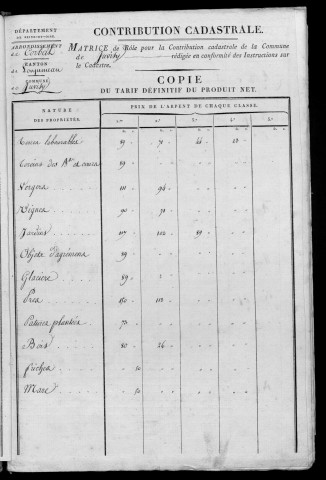 DÉPARTEMENT
DE SEINE-ET-OISE.
ARRONDISSEMENT
de Corbeil
CANTON
de Longjumeau
COMMUNE
de Juvisy
CONTRIBUTION CADASTRALE.
MATRICE de Rôle pour la Contribution cadastrale de la Commune
de Juvisy rédigée en conformité des Instructions sur
le Cadastre.
COPIE
DU TARIF DÉFINITIF DU PRODUIT NET.
NATURE
DES PROPRIÉTÉS.
PRIX DE L'ARPENT DE CHAQUE CLASSE.
Terres labourables 89 70 44
Terrains des Bns et cours 89
Vergers 111 94
Vignes 90 70
Jardins 102 89
Objets d'agrémens 89
Glacière 89
Prés 150 112
Patures plantées 75
Bois 80 26
friches 10
Mare 10